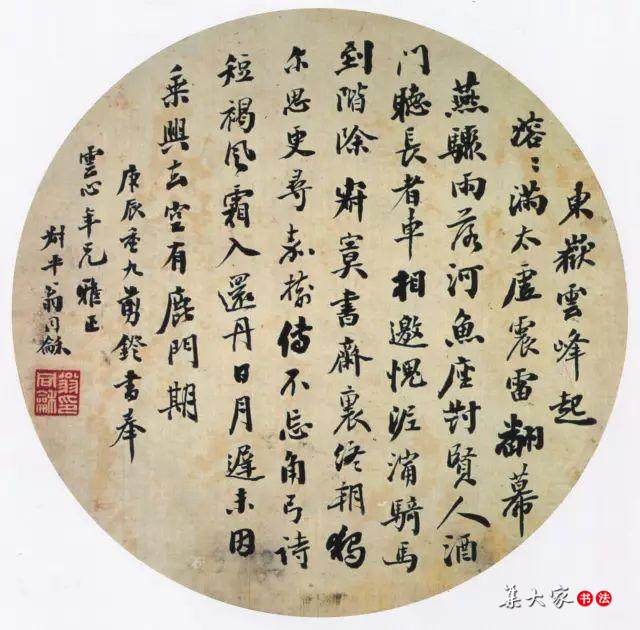 東嶽雲峰起
溶〻滿太虛震雷翻幕
燕驟雨落河魚座對賢人酒
門聽長者車相邀愧泥濘騎馬
到階除寂寞書齋裏終朝獨
尔思更尋嘉樹傳不忘角弓詩
短褐風霜入還丹日月遲未因
乘興去空有鹿門期
庚辰重九剪鐙書奉
雲心年兄雅正
叔平翁同龢
翁同龢印
集大家书法